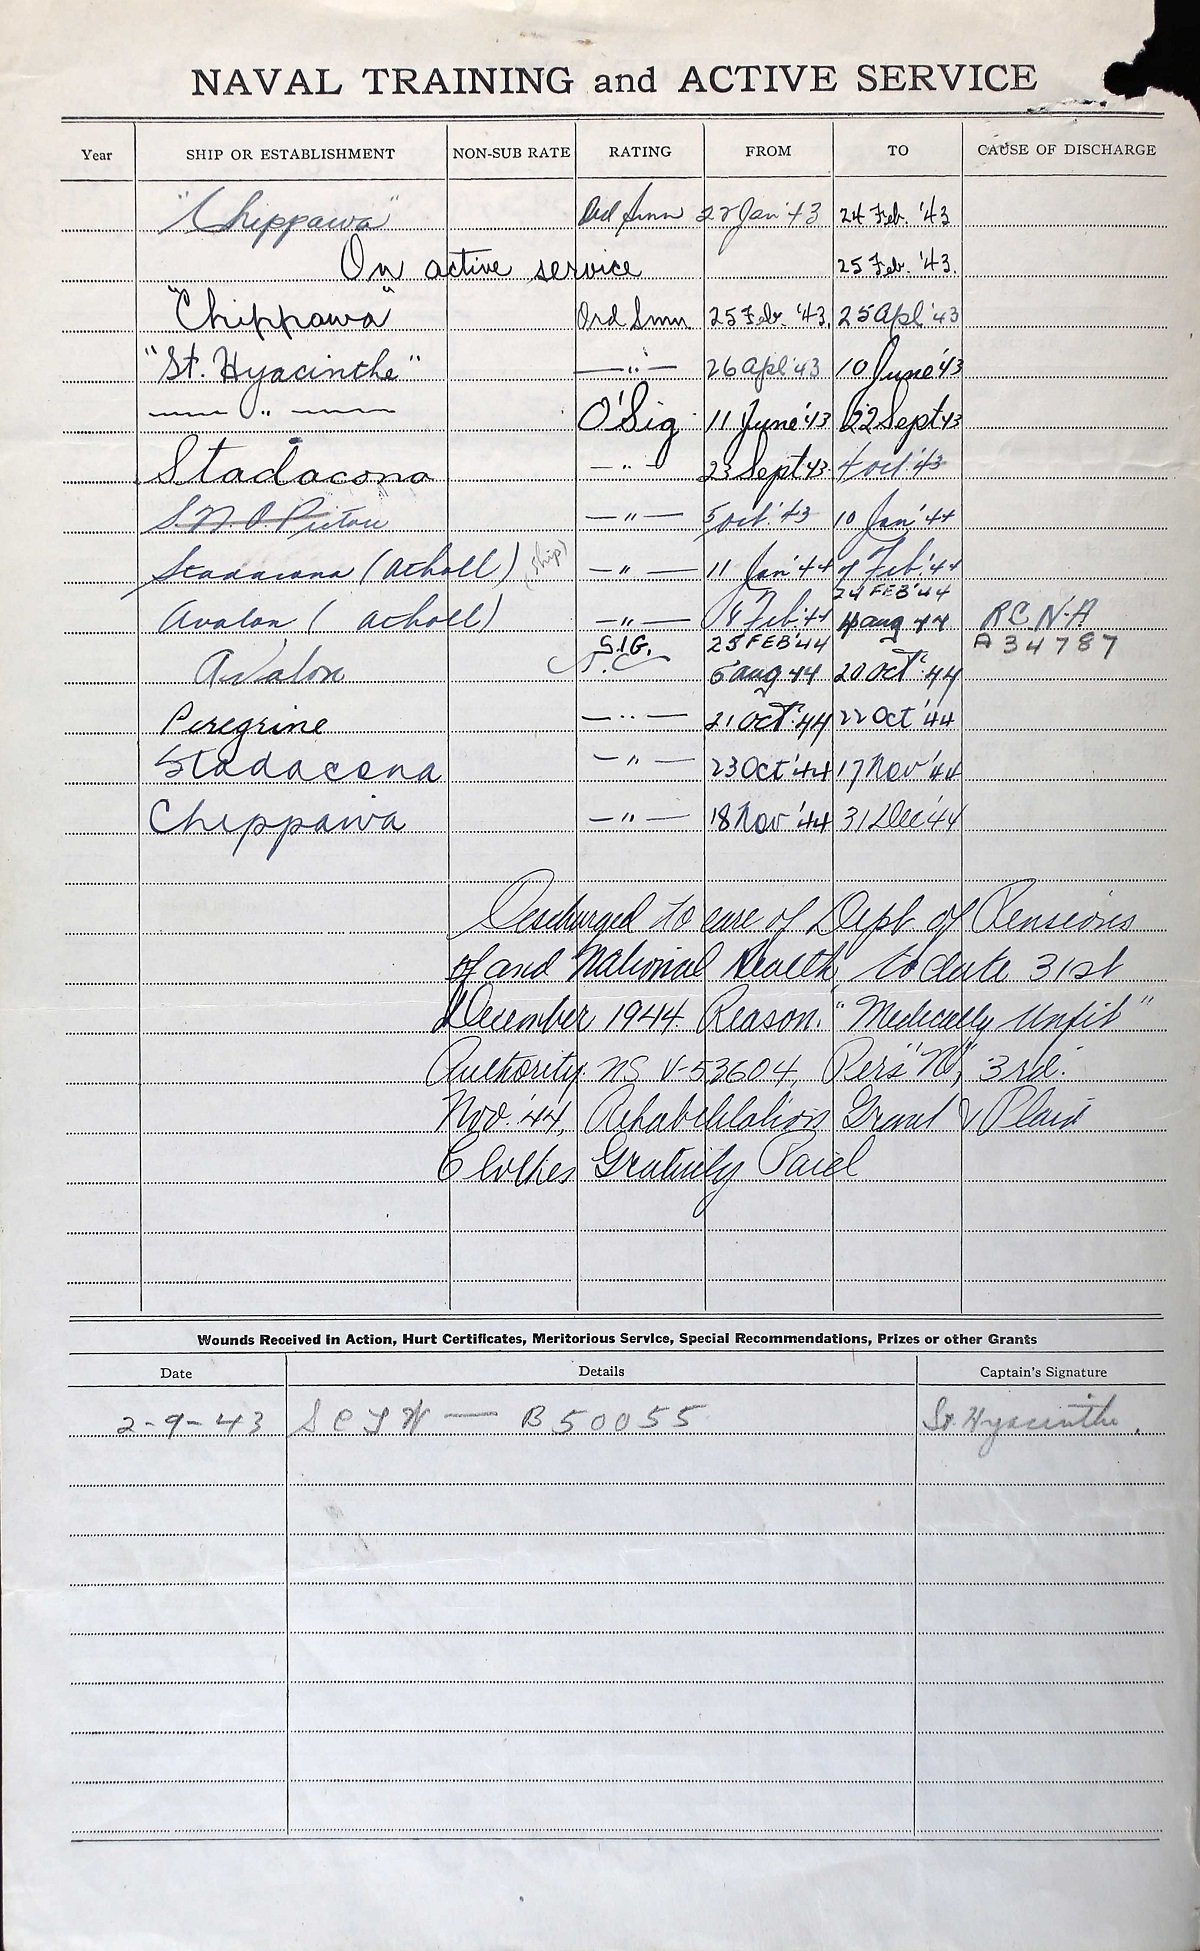 NAVAL TRAINING and ACTIVE SERVICE
Year SHIP OR ESTABLISHMENT NON-SUB RATE RATING FROM TO CAUSE OF DISCHARGE
"Chippawa" Ord Smn Jan '43 24 Feb. '43
On active service 25 Feb. '43.
"Chippawa" Ord Smn 25 Feb. '43. 25 Apl '43
"St. Hyacinthe" — " — 26 Apl '43 10 June '43
— " — O'Sig 11 June '43 22 Sept 43
Stadacona — " — 23 Sept '43. 4 Oct. '43
S.N.O Pictou — " — 5 Oct. '43 10 Jan' 44
Stadacona (Atholl) (Ship) — " — 11 Jan '44 Feb. '44
24 FEB '44
Avalon (Atholl) — " — Feb '44 4 Aug 44 R.C.N.-A
SIG. 25 FEB '44 A34787
Avalon 5 Aug 44 20 Oct '44
Peregrine — " — 21 Oct. '44 22 Oct '44
Stadacona — " — 23 Oct '44 17 Nov '44
Chippawa — " — 18 Nov '44 31 Dec '44
Discharged to care of Dept of Pensions
of and National Health, to date 31st
December 1944. Reason. "Medically Unfit"
Authority. NS V-53604, Pers "N", 3rd.
Nov. '44, Rehabilitation Grant & Plain
Clothes Gratuity Paid
Wounds Received in Action, Hurt Certificates, Meritorious Service, Special Recommendations, Prizes or other Grants
Date Details Captain's Signature
2-9-43 — B50055 St. Hyacinthe.